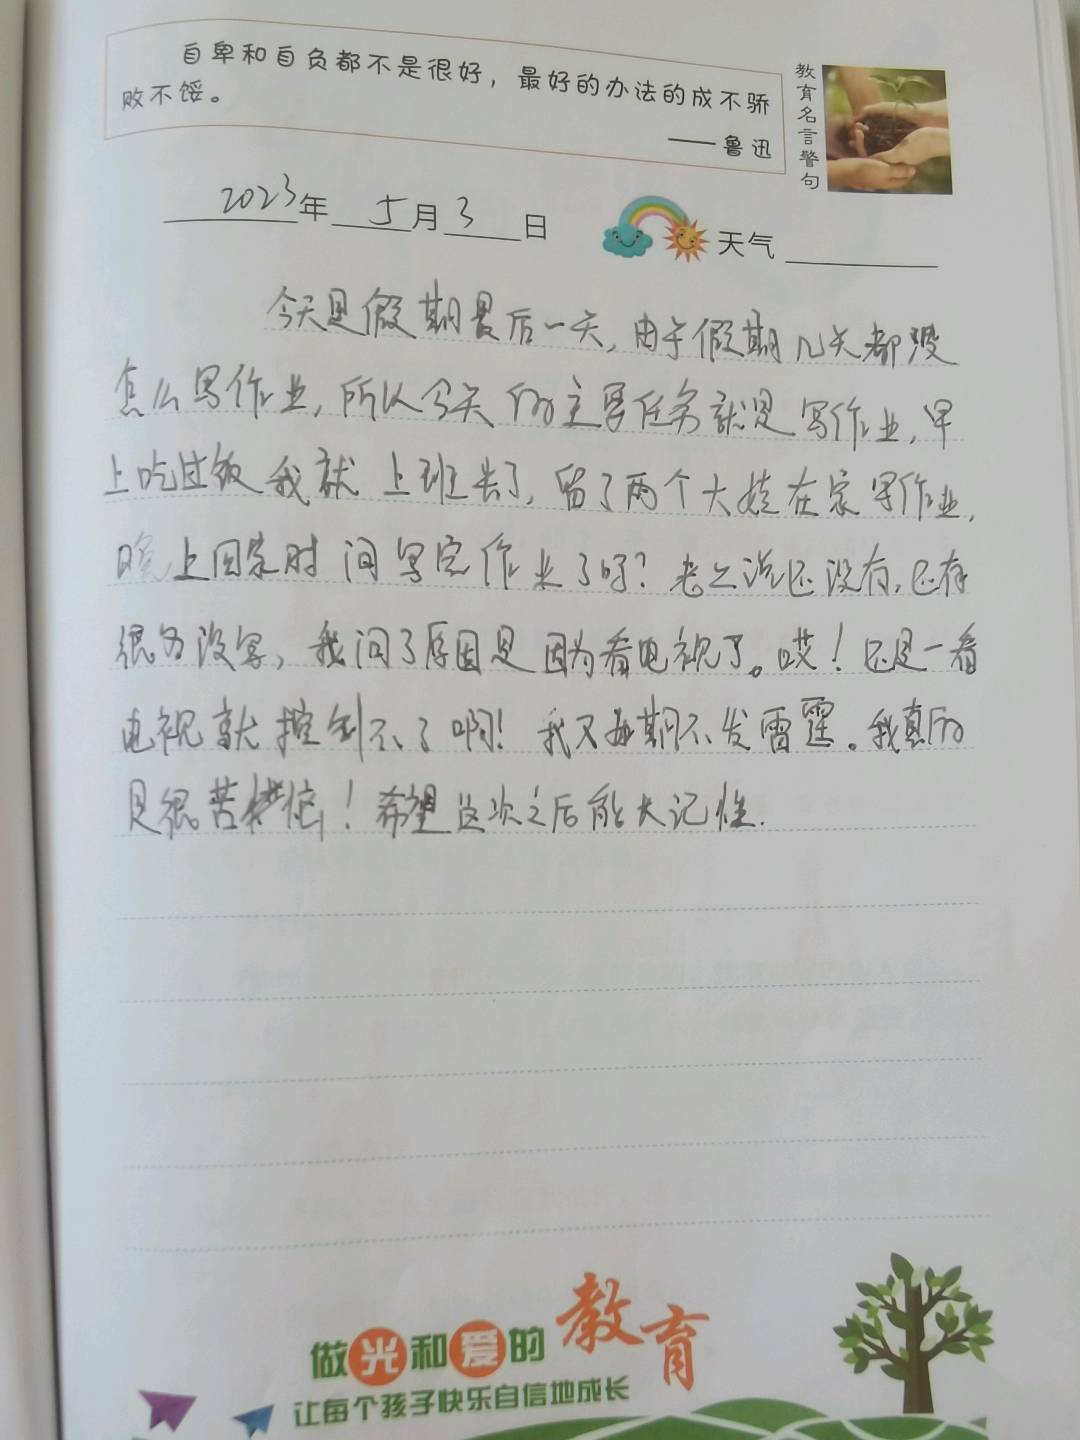 自卑和自负都不是很好，最好的办法的成不骄
败不馁。
——鲁迅
教育名言警句
2023年 5月3日 天气
今天是假期最后一天,由于假期几天都没
怎么写作业,所以今天的主要任务就是写作业,早
上吃过饭我就上班去了,留了两个大娃在家写作业,
晚上回家时问写完作业了吗?老二说还没有,还有
很多没写,我问了原因是因为看电视了。哎!还是一看
电视就控制不了啊!我又再期不发雷霆。我真的
是很苦恼!希望这次之后能长记性.
做光和爱的教育
让每个孩子快乐自信地成长